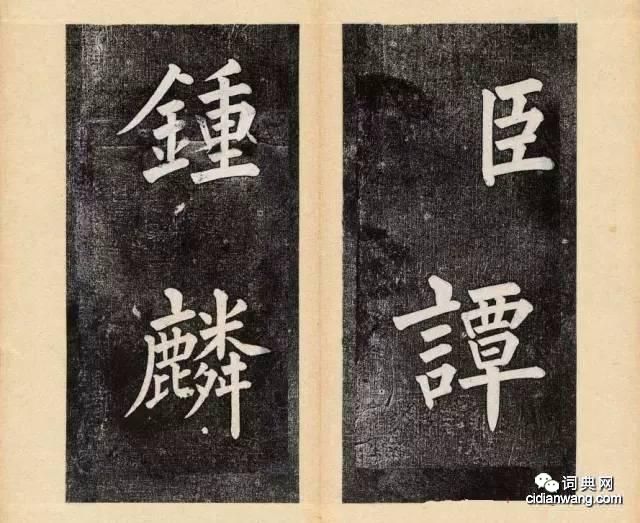 臣
譚
鍾
麟
词典网
cidianwang.com